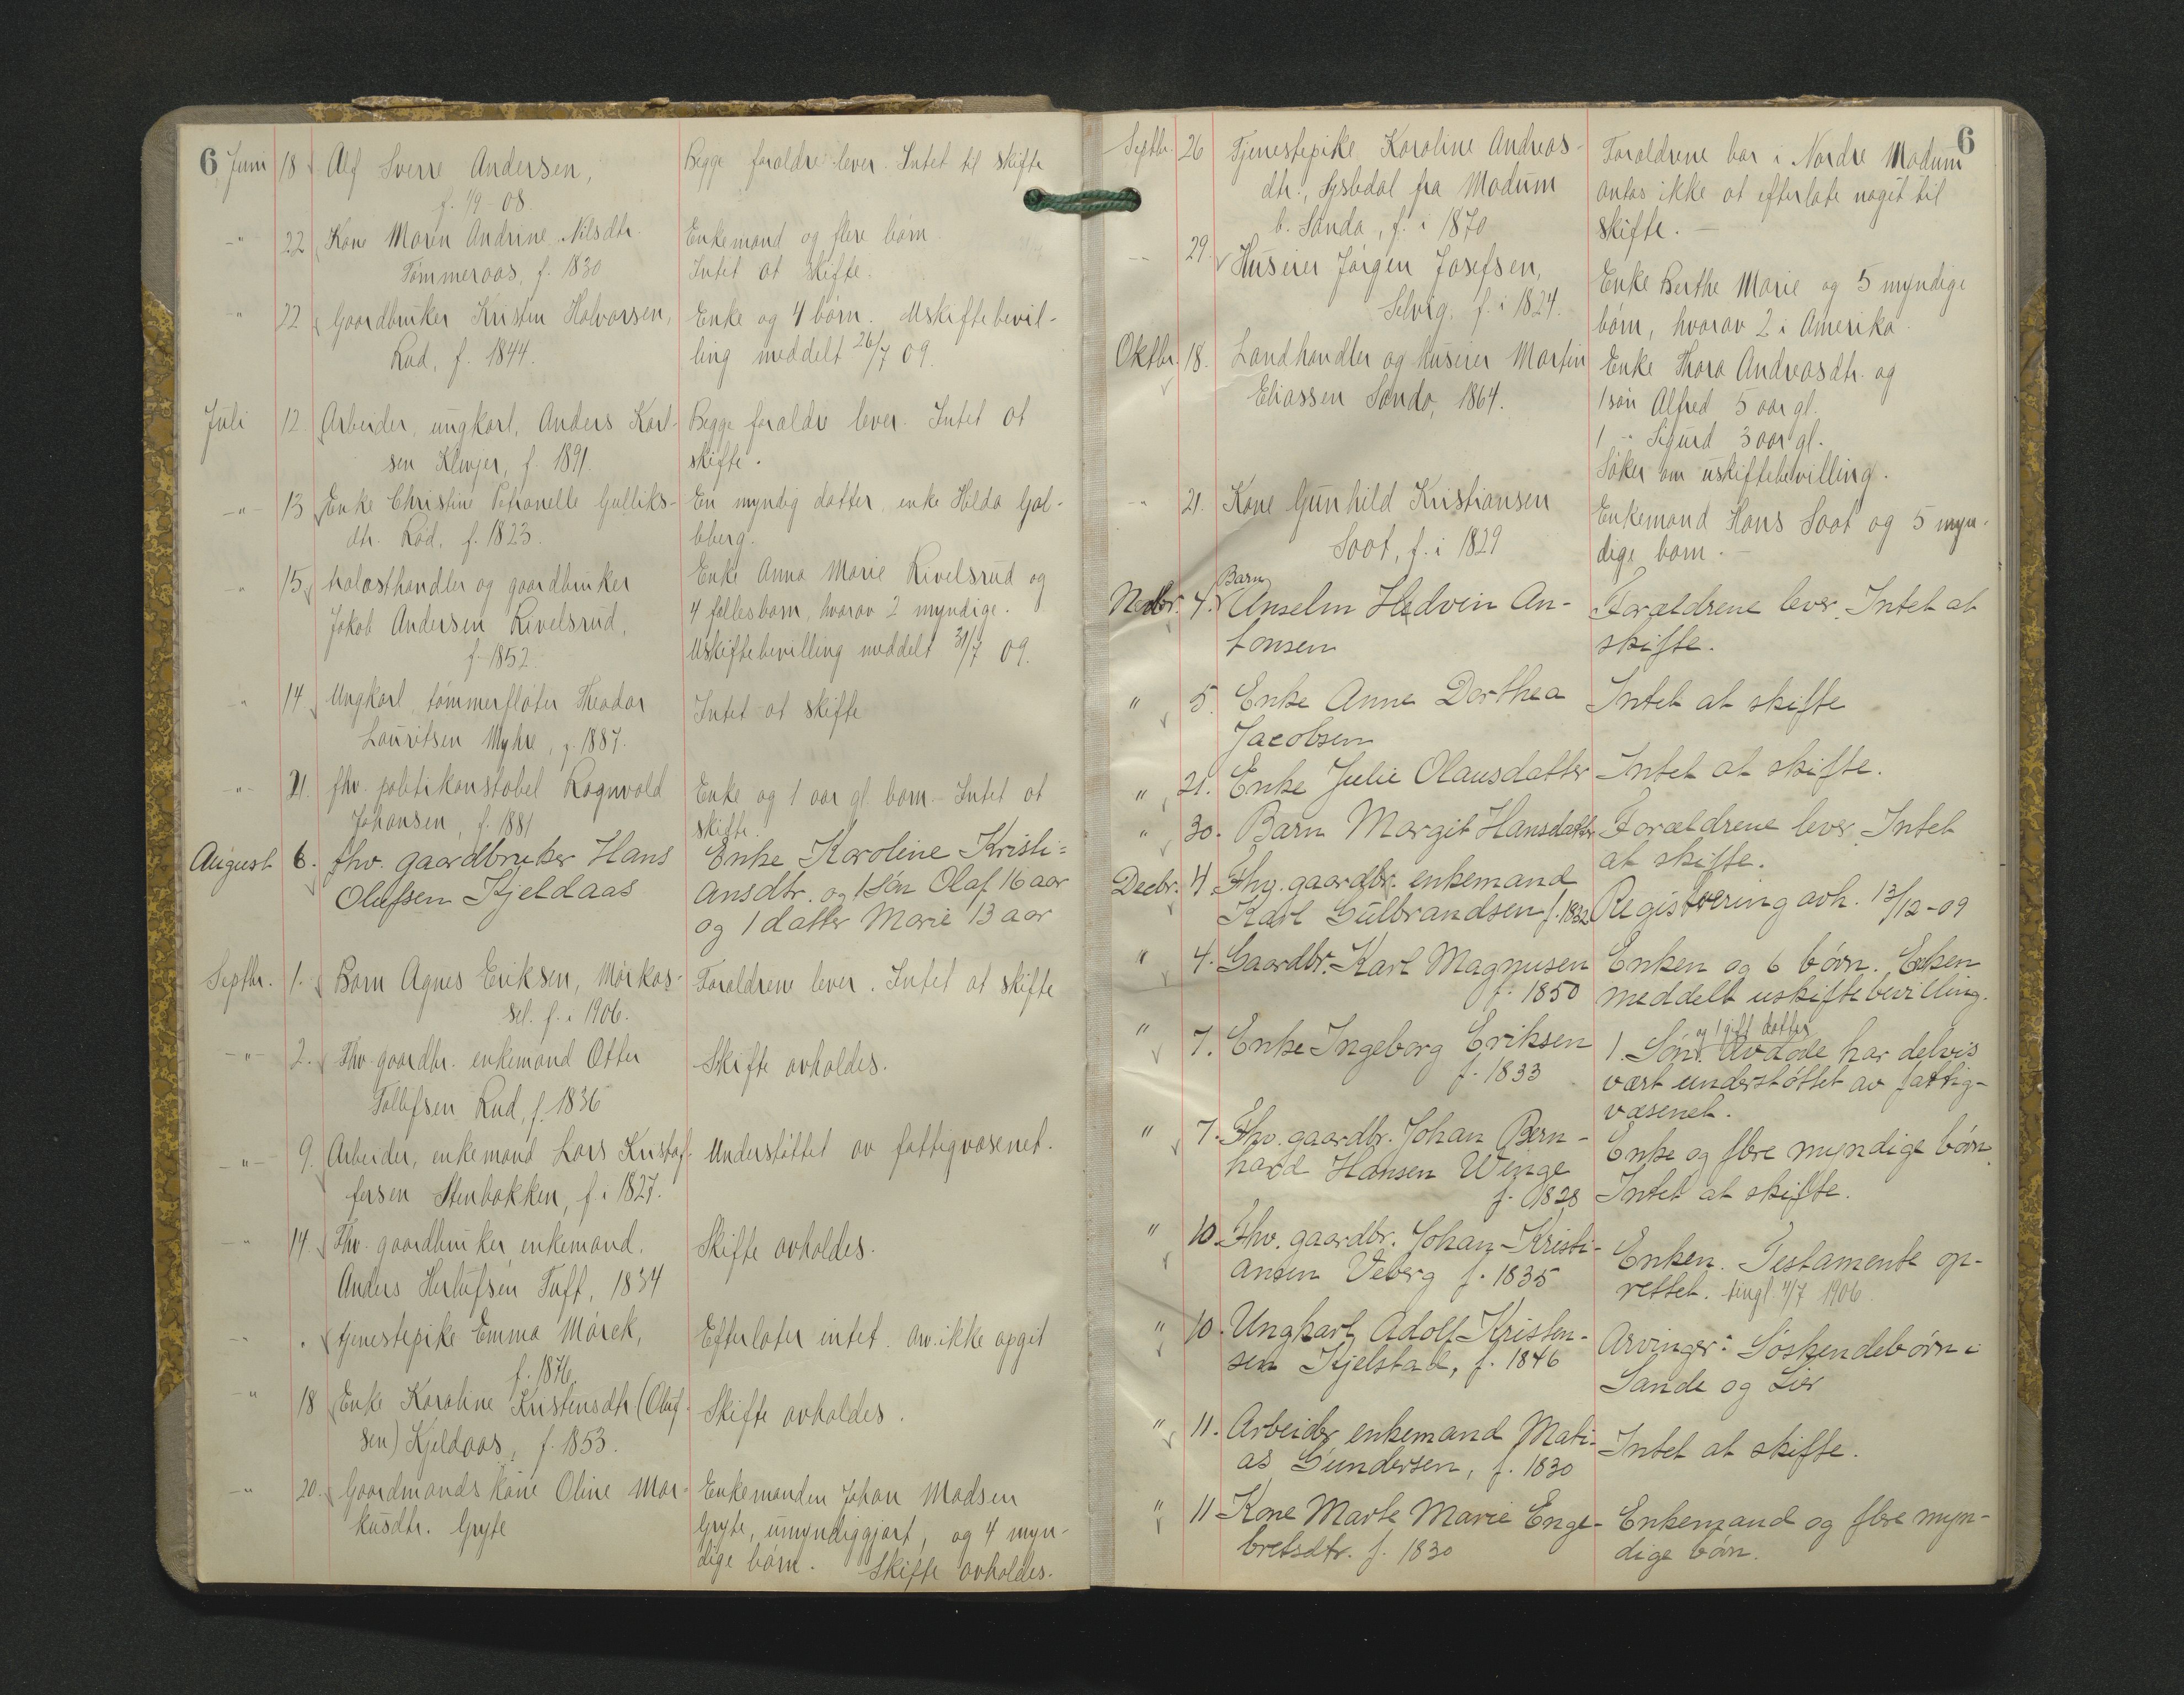 6 Juni 18 Alf Sverre Andersen,
f. 1/9 08.
Begge forældre lever. Intet til skifte
-"- 22 Kone Maren Andrine Nilsdtr.
Tømmeraas, f. 1830
Enkemand og flere børn.
Intet at skifte.
" 22 Gaardbruker Kristen Halvorsen,
Rud, f. 1844.
Enke og 4 børn. Uskiftebevil-
ling meddelt 26/7 09.
Juli 12. Arbeider, ungkarl, Anders Karl-
sen Klevjer, f. 1891.
Begge forældre lever. Intet at
skifte.
-"- 13 Enke Christine Petronelle Gulliks-
dtr. Rød, f. 1823.
En myndig datter, enke Hilda Gol-
berg.
" 15 trælasthandler og gaardbruker
Jakob Andersen Rivelsrud,
f. 1852.
Enke Anna Marie Rivelsrud og
4 fællesbarn, hvorav 2 myndige.
Uskiftebevilling meddelt 31/7 09.
" 14 Ungkarl tømmerfløter Theodor
Lauritsen Myhre, f. 1887.
Intet at skifte
-"- 21. fhv. politikonstabel Ragnvald
Johansen, f. 1881
Enke og 1 aar gl. barn. Intet at
skifte.
August 6. fhv. gaardbruker Hans
Olufsen Kjeldaas
Enke Karoline Kristi=
ansdtr. og 1 Søn Olaf 16 aar
og 1 datter Marie 13 aar
Septbr. 1. Barn Agnes Eriksen, Mørkas-
sel. f. i 1906.
Forældrene lever. Intet at skifte
-"- 2. Fhv. gaardbr. enkemand Otter
Tollefsen Rud, f. 1836
Skifte avholdes.
-"- 9. Arbeider, enkemand Lars Kristof-
fersen Stenbakken, f. i 1827.
Understøttet av fattigvæsenet.
-"- 14 Fhv. gaardbruker, enkemand,
Anders Herlufsen Tuft, 1834
Skifte avholdes.
-"- " tjenestepike Emma Mørck,
f. 1876.
Efterlater intet. Arv. ikke opgit
-"- 18 Enke Karoline Kristensdtr (Oluf-
sen) Kjeldaas, f. 1853.
Skifte avholdes.
-"- 20. Gaardmands kone Oline Mar-
kusdtr. Gryte
Enkemanden Johan Madsen
Gryte, umyndiggjort, og 4 myn-
dige børn. Skifte avholdes.
6
Septbr. 26 Tjenestepike Karoline Andreas-
dtr., fra Modum
b. Sande, f. i 1870
Forældrene bor i Nordre Modum
antas ikke at efterlate noget til
skifte. —
-"- 29. Huseier Jørgen Josefsen,
Selvig, f. i 1824.
Enke Berthe Marie og 5 myndige
børn, hvorav 2 i Amerika.
Oktbr. 18. Landhandler og huseier Martin
Eliassen Sande, 1864.
Enke Thora Andreasdtr. og
1 søn Alfred 5 aar gl.
1 -"- Sigurd 3 aar gl.
Søker om uskiftebevilling.
-"- 21. Kone Gunhild Kristiansen
Soot, f. i 1829
Enkemand Hans Soot og 5 myn-
dige barn. —
Barn
Novbr. 4. Anselm Hedvin An-
tonsen
Forældrene lever. Intet at
skifte.
" 5. Enke Anne Dorthea
Jacobsen
Intet at skifte
" 21. Enke Julie Olausdatter
Intet at skifte.
" 30. Barn Margit Hansdatter
Forældrene lever. Intet
at skifte.
Decbr. 4. Fhv. gaardbr. enkemand
Karl Gulbrandsen f. 1832
Registrering avh. 13/12-09
" 4. Gaardbr. Karl Magnusen
f. 1850
Enken og 6 børn. Enken
meddelt uskiftebevilling.
" 7. Enke Ingeborg Eriksen
f. 1833
og 1 gift datter
1. Søn. Avdøde har delvis
vært understøttet av fattig-
væsenet.
" 7. Fhv. gaardbr. Johan Bern-
hard Hansen Winge
f. 1828
Enke og flere myndige børn.
Intet at skifte.
" 10. Fhv. gaardbr. Johan Kristi-
ansen Veberg f. 1835
Enken. Testamente op-
rettet. tingl. 4/7 1906.
" 10. Ungkarl Adolf Kristen-
sen Kjelstad, f. 1846
Arvinger: Søskendebørn i
Sande og Lier
" 11. Arbeider enkemand Mati-
as Gundersen, f. 1830
Intet at skifte.
" 11 Kone Marte Marie Enge-
bretsdtr. f. 1830
Enkemand og flere myn-
dige børn.